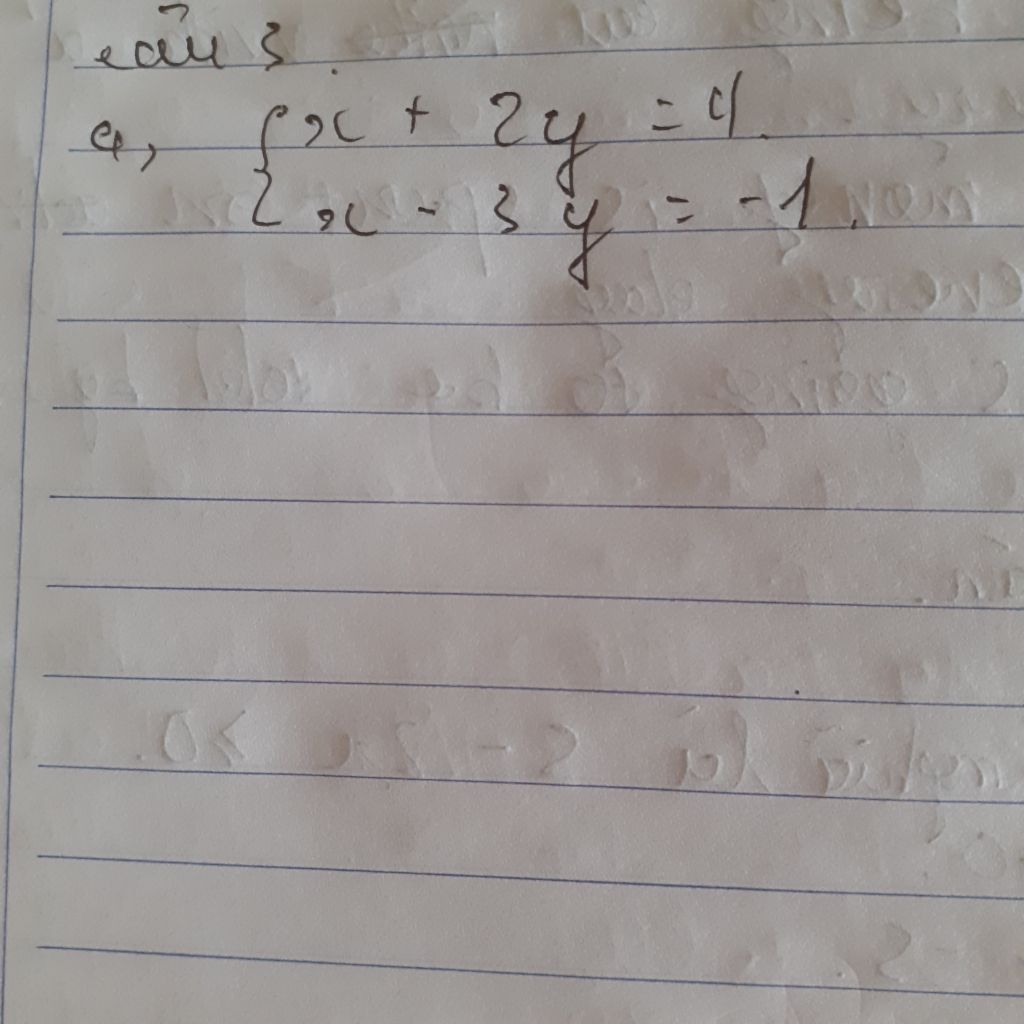 Câu 3.
a, { x + 2y = 4.
{ x - 3y = -1.